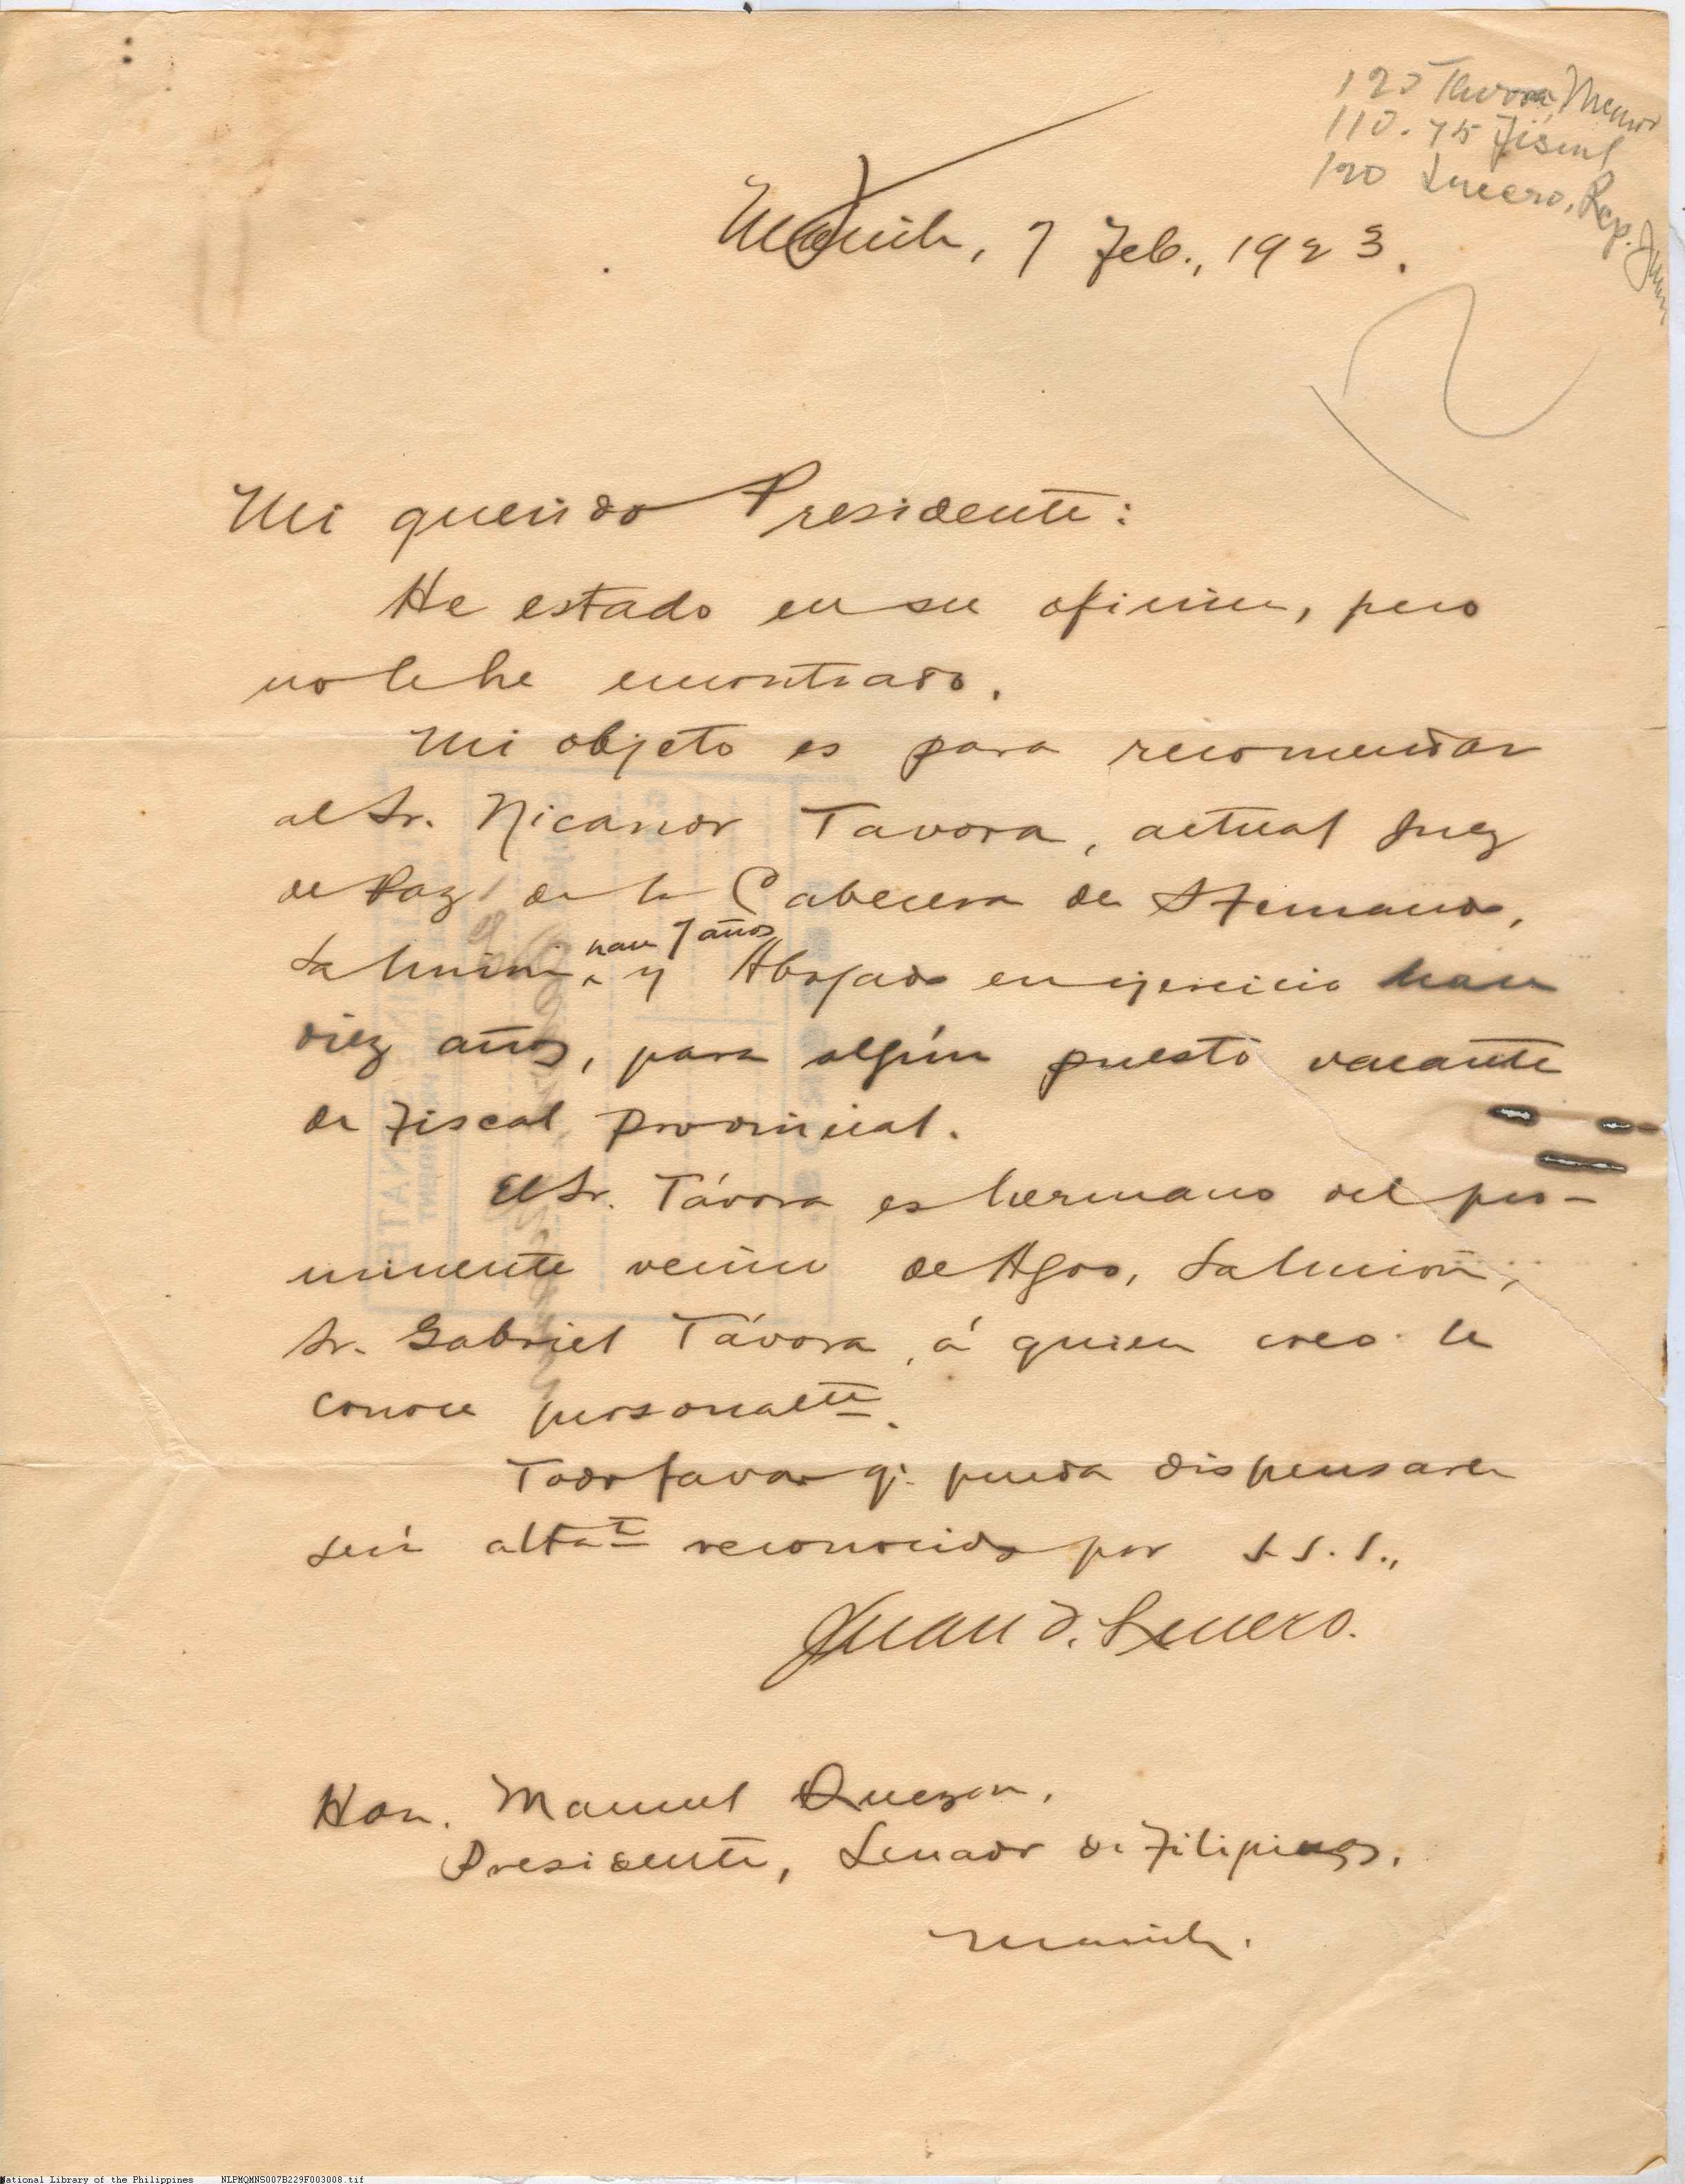 120 Tavora,
110.75 Fiscal
120 Lucero, Rep. Juan
Manila, 7 Feb., 1923.
Mi querido Presidente:
He estado en su oficina, pero
no le he encontrado.
Mi objeto es para recomendar
al Sr. Nicanor Tavora, actual Juez
de Paz de la Cabecera de S Fernando,
han 7 años
La Unión ^ y Abogado en ejercicio han
diez años, para algún puesto vacante
de Fiscal Provincial.
El Sr. Távora es hermano del pro-
minente vecino de Agoo, La Unión,
Sr. Gabriel Távora, á quien creo le
conoce personalte.
Todo favor q. pueda dispensarle
será altate reconocido por S.S.S.,
Juan T. Lucero.
Hon. Manuel Quezon,
Presidente, Senado de Filipinas.
Manila.
National Library of the Philippines NLPMQMNS007B229F003008.tif